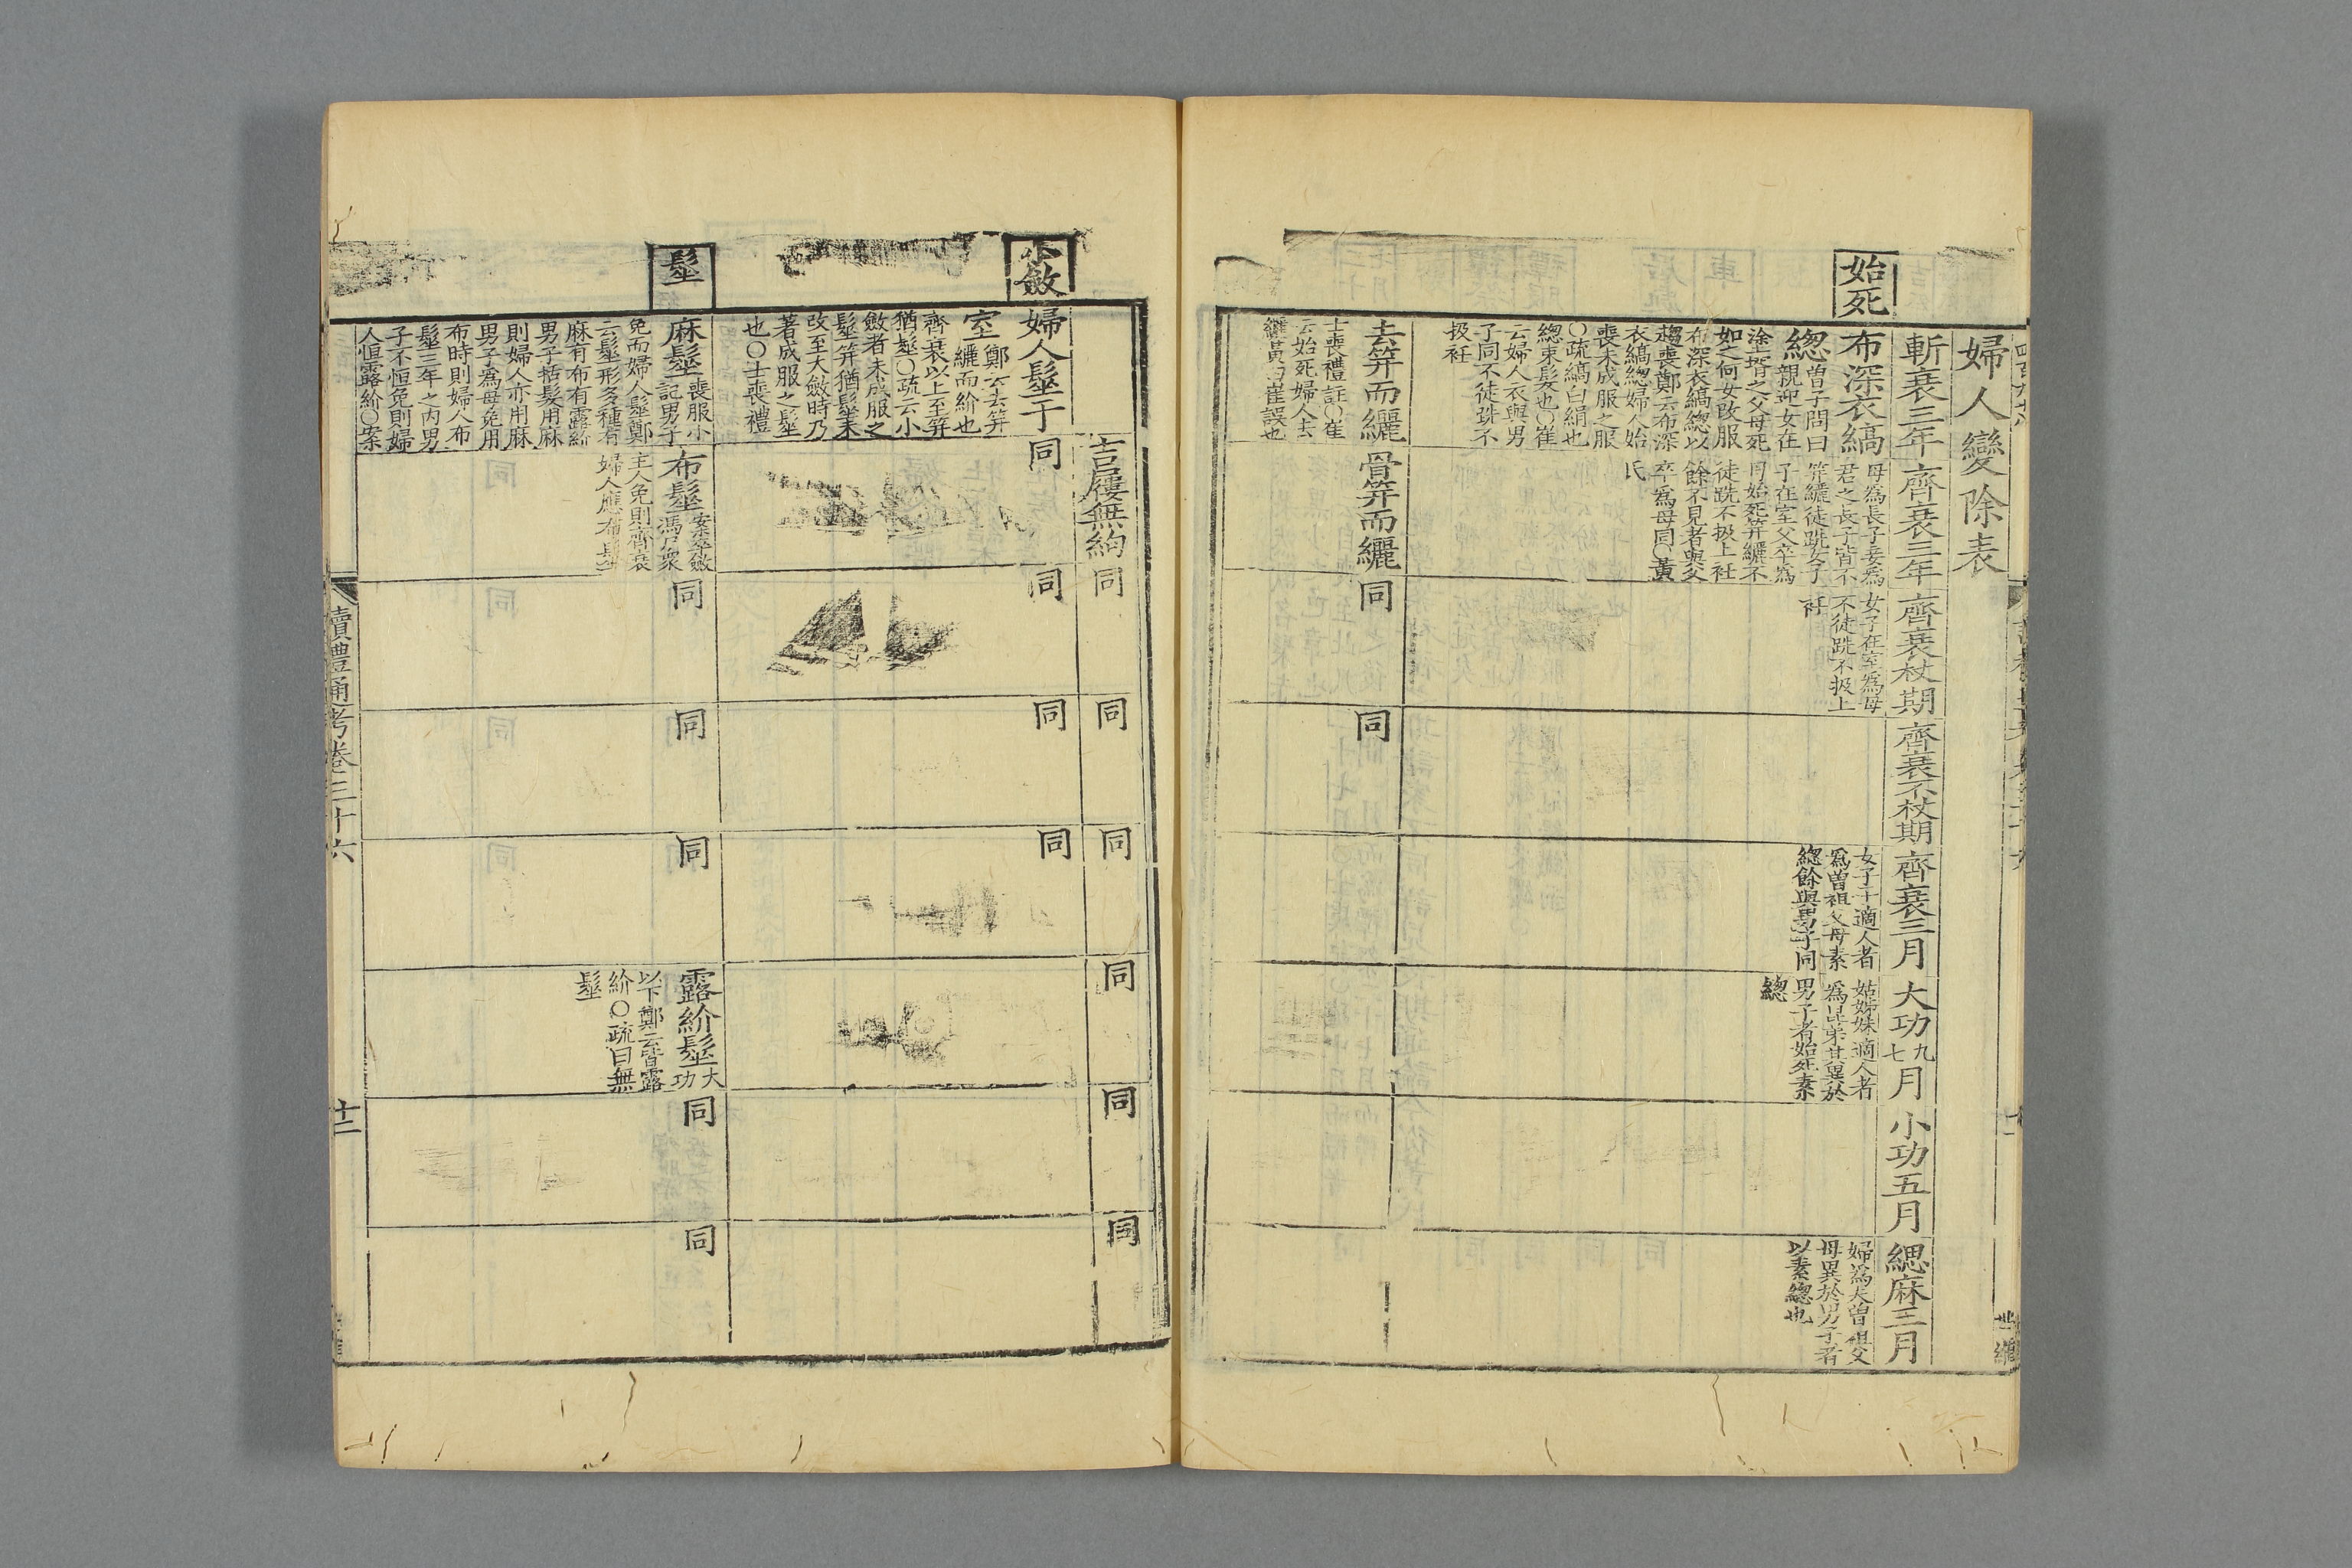 婦人變除表
斬衰三年
齊衰三年
齊衰杖期
齊衰不杖期
齊衰三月
大功九
七月
小功五月
緦麻三月
始死
布深衣縞
總曾子問曰
親迎女在
塗壻之父母死
如之何女改服
布深衣縞總以
趨喪鄭云布深
衣縞總婦人始
喪未成服之服
○疏縞白絹也
總束髮也○崔
云婦人衣與男
子同不徒跣不
扱衽
母為長子妾為
君之長子皆不
笄纚徒跣女子
子在室父卒為
母始死笄纚不
徒跣不扱上衽
餘不見者與父
卒為母同○黃
氏
女子在室為母
不徒跣不扱上
衽
女子子適人者
為曾祖父母素
總餘與男子同
姑姊妹適人者
為昆弟甚異於
男子者始死素
總
婦為夫曾祖父
母異於男子者
以素總也
去笄而纚
士喪禮註○崔
云始死婦人去
纚黃云崔誤也
骨笄而纚
同
同
吉屨無絇
同
同
同
同
同
同
小斂
婦人髽于
室鄭云去笄
纚而紒也
齊衰以上至笄
猶髽○疏云小
斂者未成服之
髽笄猶髽未
改至大斂時乃
著成服之髽
也○士喪禮
同
同
同
同
髽
麻髽喪服小
記男子
免而婦人髽鄭
云髽形多種有
麻有布有露紒
男子括髮用麻
則婦人亦用麻
男子為母免用
布時則婦人布
髽三年之內男
子不恒免則婦
人恒露紒○案
布髽案卒斂
馮尸衆
主人免則齊衰
婦人應布髽
同
同
同
露紒髽大
功
以下鄭云皆露
紒○疏曰無
髽
同
同
讀禮通考卷三十六
十二